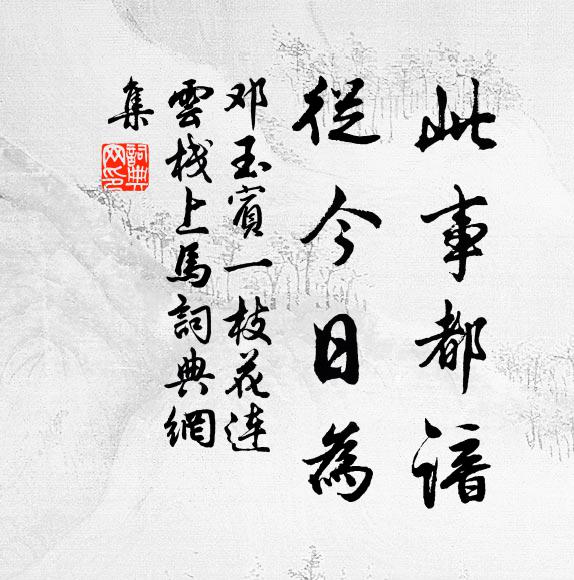 此事都谙
從今日為
邓玉賓一枝花連
雲棧上馬詞典網
集
詞典
网印